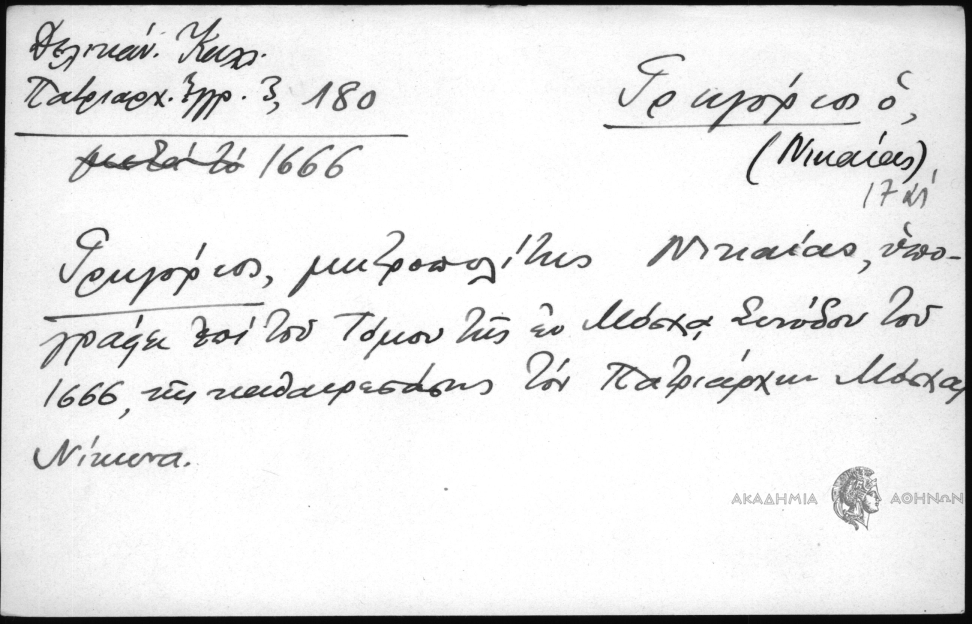 Δελικάν. Καλ.
Πατριαρχ. Ἔγγρ. 3, 180
μετὰ τὸ 1666
Γρηγόριος ὁ,
(Νικαίας)
17 αἰ
Γρηγόριος, μητροπολίτης Νικαίας, ὑπο-
γράφει ἐπὶ τοῦ Τόμου τῆς ἐν Μόσχᾳ Συνόδου τοῦ
1666, τῆς καθαιρεσάσης τὸν Πατριάρχην Μόσχας
Νίκωνα.
ΑΚΑΔΗΜΙΑ ΑΘΗΝΩΝ